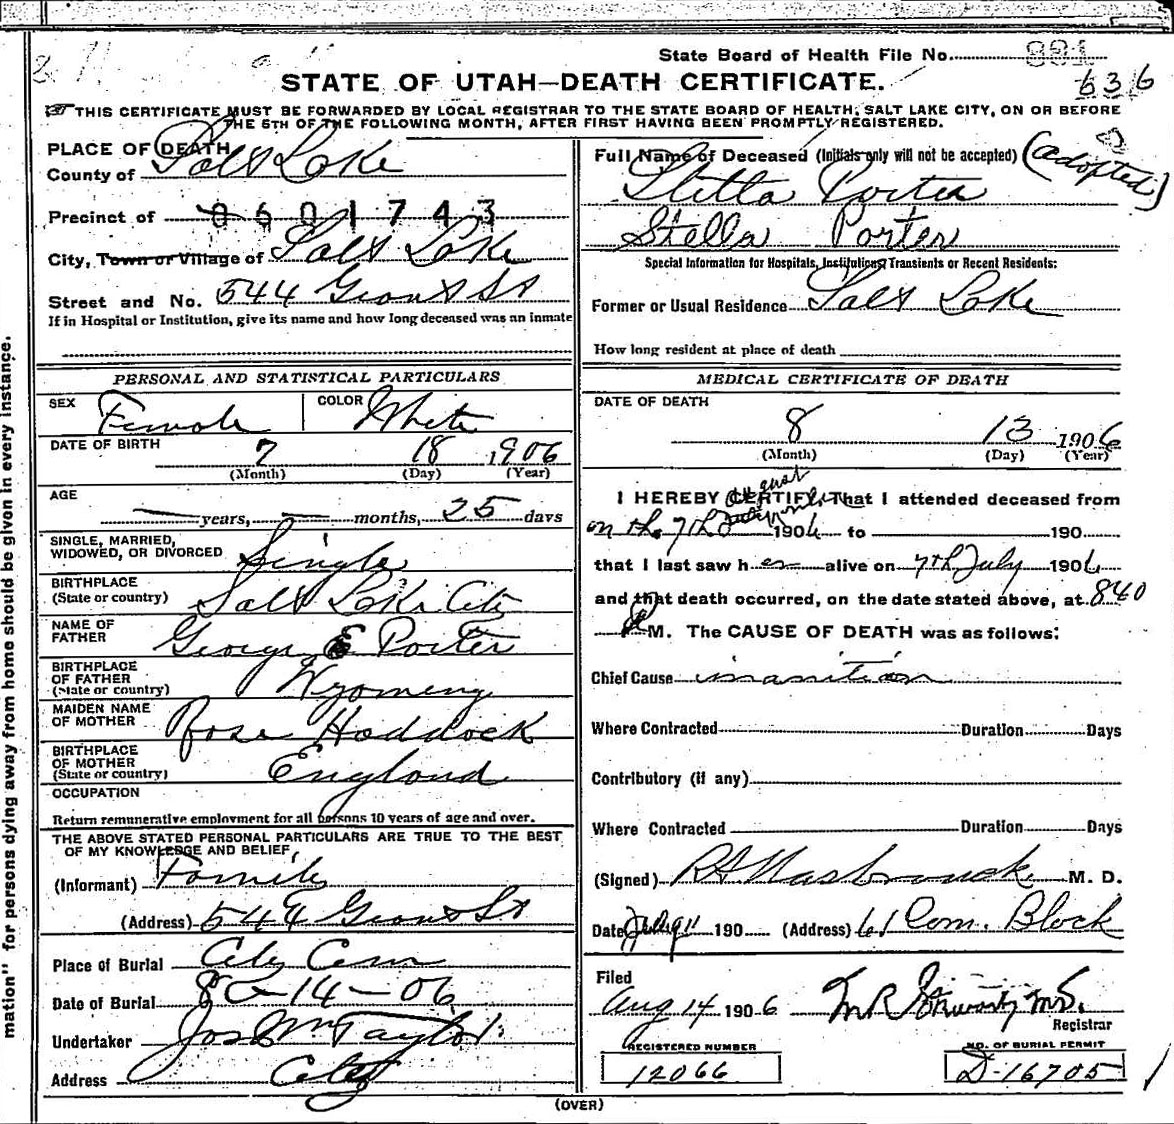 State Board of Health File No. 881
636
STATE OF UTAH—DEATH CERTIFICATE.
THIS CERTIFICATE MUST BE FORWARDED BY LOCAL REGISTRAR TO THE STATE BOARD OF HEALTH, SALT LAKE CITY, ON OR BEFORE
THE 5TH OF THE FOLLOWING MONTH, AFTER FIRST HAVING BEEN PROMPTLY REGISTERED.
PLACE OF DEATH
County of Salt Lake
Precinct of 0601743
City, Town or Village of Salt Lake
Street and No. 544 Grant St
If in Hospital or Institution, give its name and how long deceased was an inmate
Full Name of Deceased (Initials only will not be accepted) (adopted)
Stella Porter
Stella Porter
Special Information for Hospitals, Institutions, Transients or Recent Residents:
Former or Usual Residence Salt Lake
How long resident at place of death
PERSONAL AND STATISTICAL PARTICULARS
SEX Female
COLOR White
DATE OF BIRTH
7 18 1906
(Month) (Day) (Year)
AGE
— years, — months, 25 days
SINGLE, MARRIED,
WIDOWED, OR DIVORCED Single
BIRTHPLACE
(State or country) Salt Lake City
NAME OF
FATHER George E Porter
BIRTHPLACE
OF FATHER
(State or country) Wyomeng
MAIDEN NAME
OF MOTHER Rose Haddock
BIRTHPLACE
OF MOTHER
(State or country) England
OCCUPATION
Return remunerative employment for all persons 10 years of age and over.
THE ABOVE STATED PERSONAL PARTICULARS ARE TRUE TO THE BEST
OF MY KNOWLEDGE AND BELIEF,
(Informant) Family
(Address) 544 Grant St
Place of Burial City Cem
Date of Burial 8-14-06
Undertaker Jos Wm Taylor
Address City
MEDICAL CERTIFICATE OF DEATH
DATE OF DEATH
8 13 1906
(Month) (Day) (Year)
August
I HEREBY CERTIFY That I attended deceased from
on the 7th 1906 to 190
that I last saw her alive on 7th July 1906
and that death occurred, on the date stated above, at 840
M. The CAUSE OF DEATH was as follows:
Chief Cause inanition
Where Contracted Duration Days
Contributory (if any)
Where Contracted Duration Days
(Signed) R A Hasbrouck M. D.
Date 190 (Address) 61 Com. Block
Filed
Aug 14 1906
Registrar
REGISTERED NUMBER
12066
NO. OF BURIAL PERMIT
D-16705
(OVER)
mation" for persons dying away from home should be given in every instance.